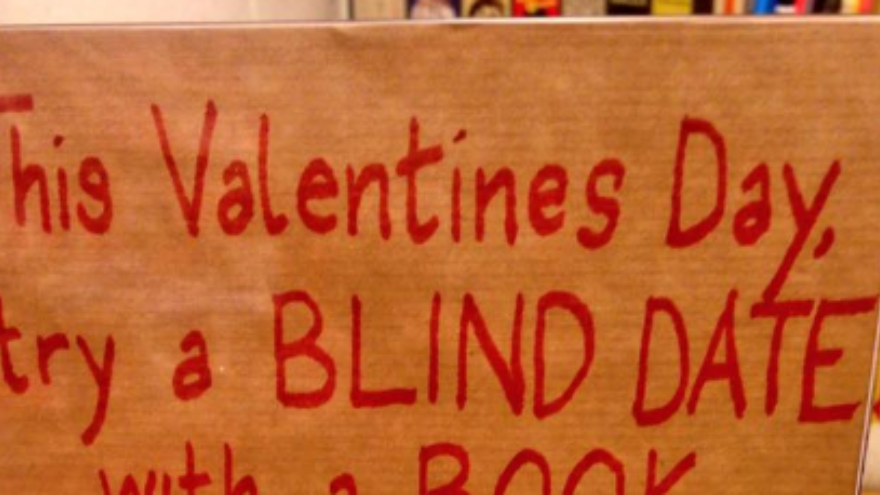 This Valentines Day,
try a BLIND DATE
with a BOOK